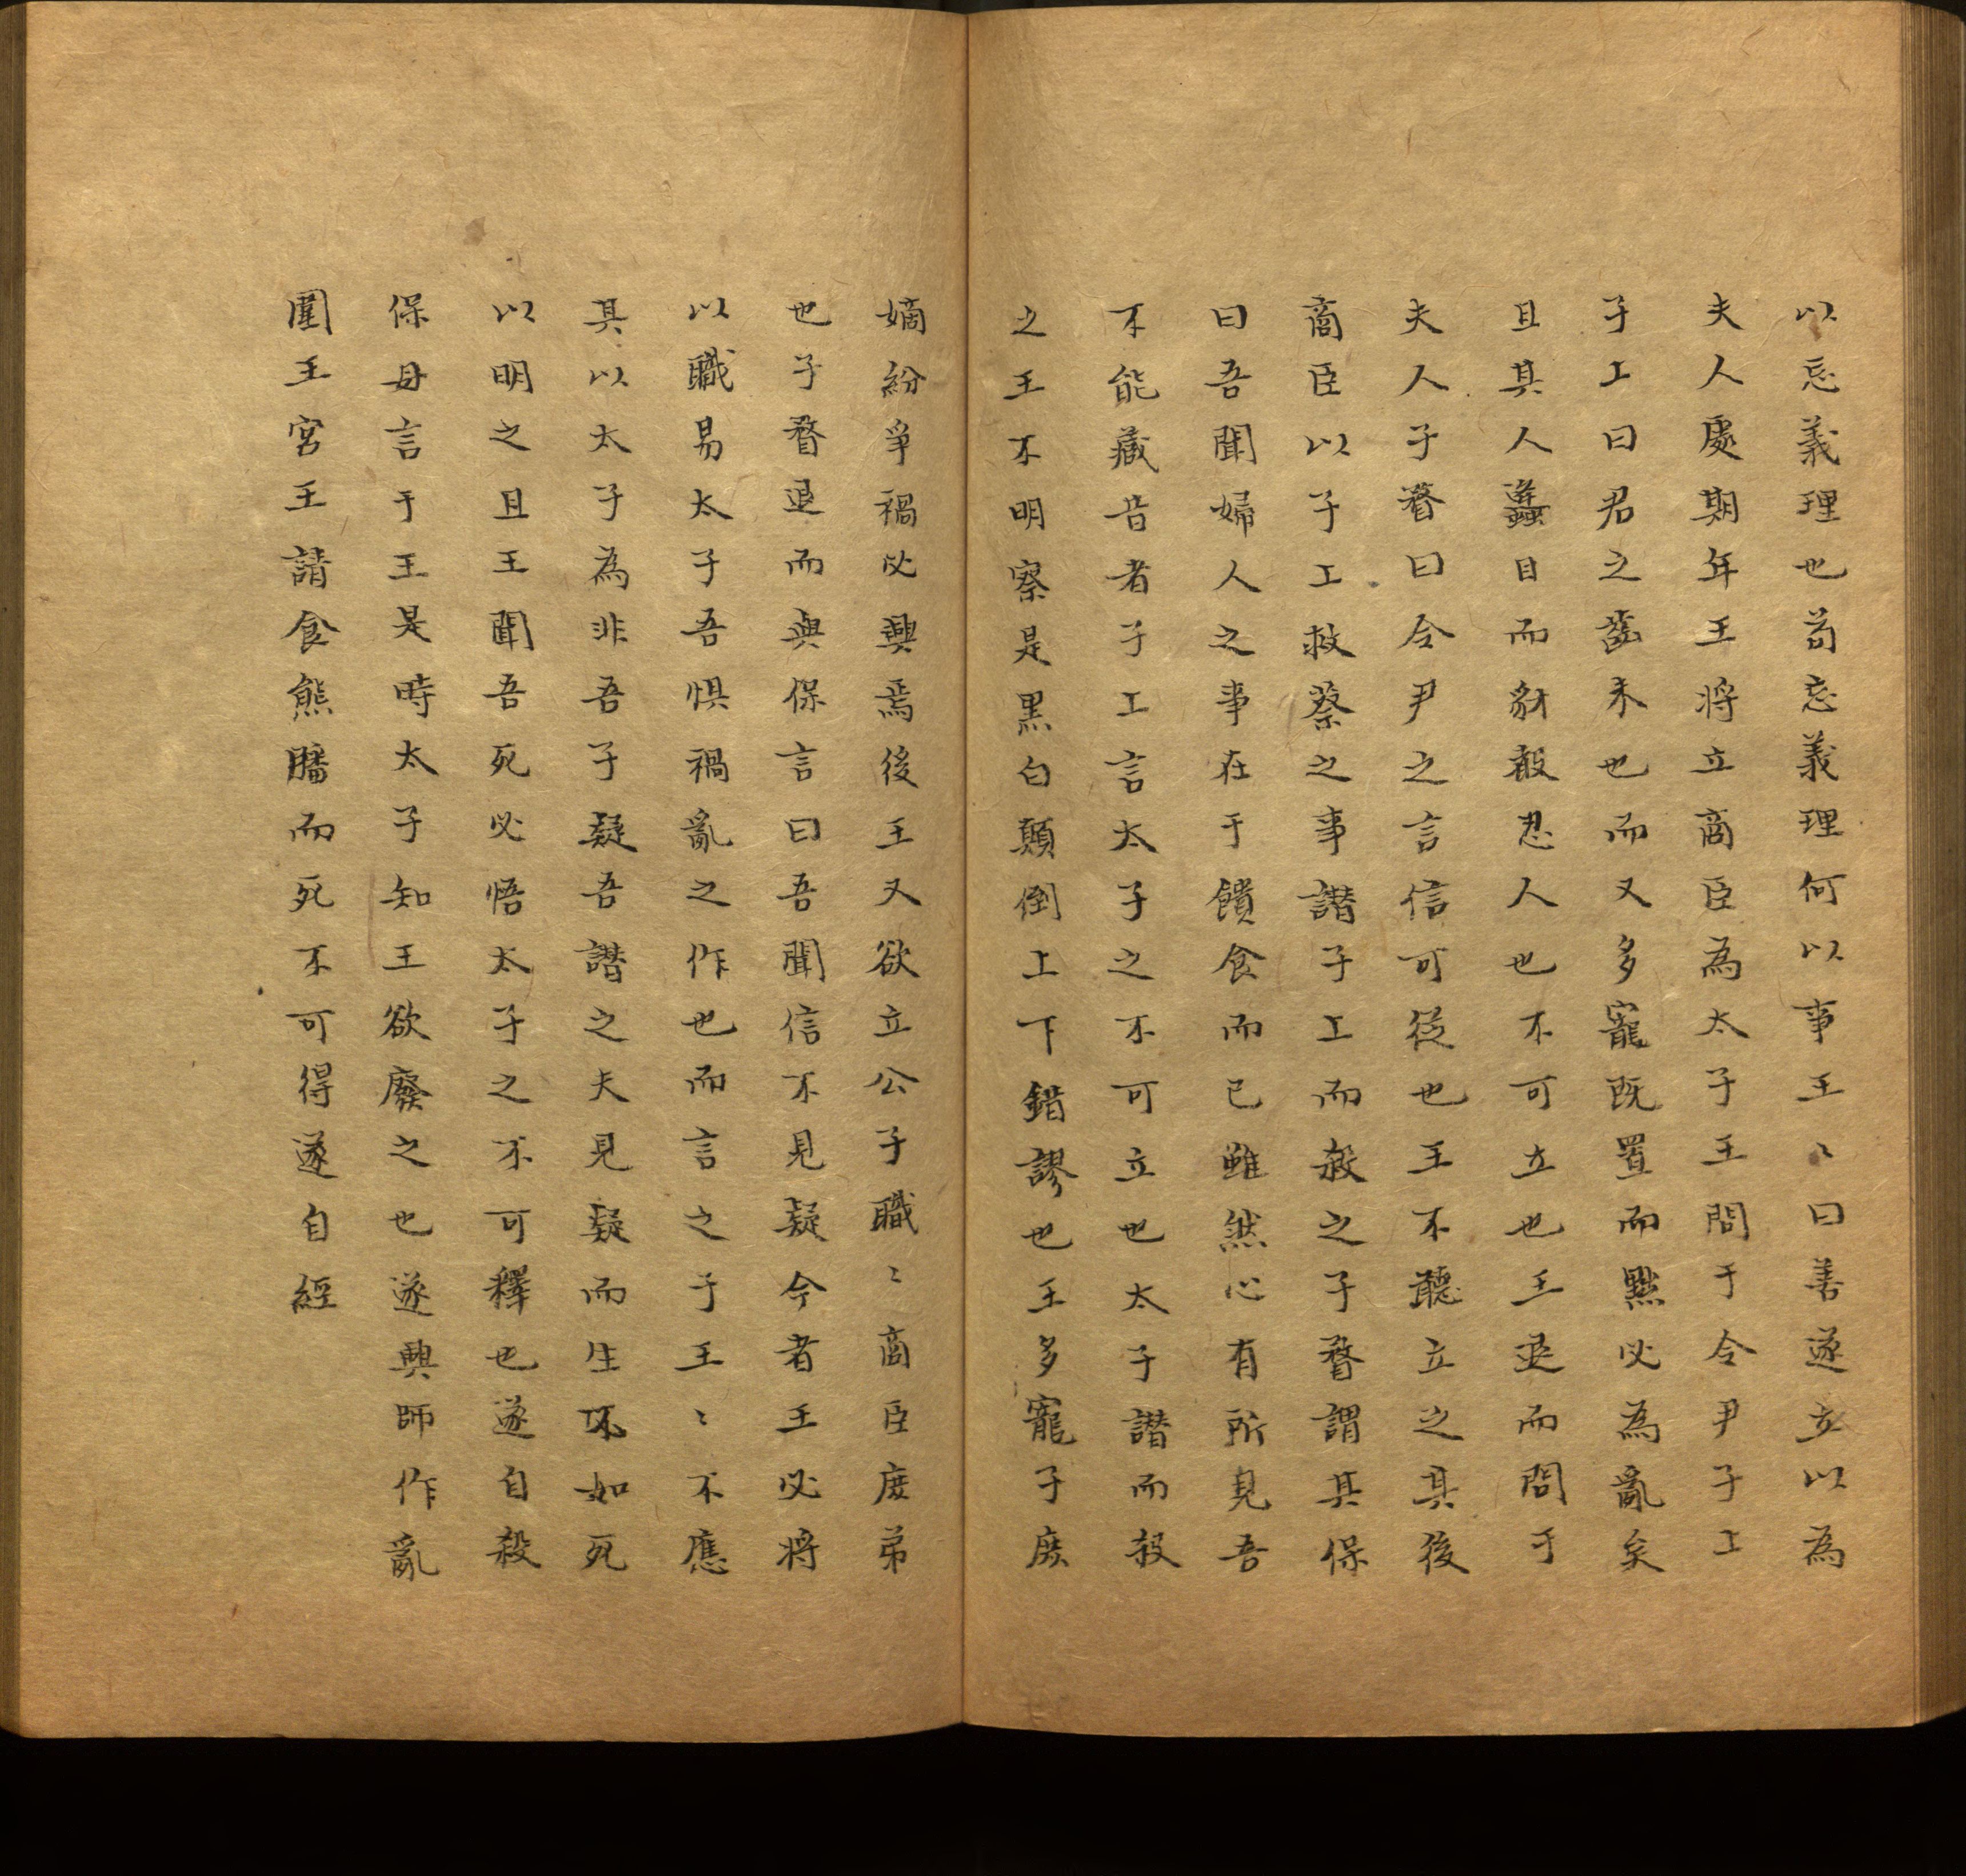 以忘義理也苟忘義理何以事王〻曰善遂立以為
夫人處期年王將立商臣為太子王問于令尹子上
子上曰君之齒未也而又多寵既置而黜必為亂矣
且其人蠭目而豺聲忍人也不可立也王退而問于
夫人子瞀曰令尹之言信可從也王不聽立之其後
商臣以子上救蔡之事譖子上而殺之子瞀謂其保
曰吾聞婦人之事在于饋食而已雖然心有所見吾
不能藏昔者子上言太子之不可立也太子譖而殺
之王不明察是黑白顛倒上下錯謬也王多寵子庶
嫡紛爭禍必興焉後王又欲立公子職〻商臣庶弟
也子瞀退而與保言曰吾聞信不見疑今者王必將
以職易太子吾惧禍亂之作也而言之于王〻不應
其以太子為非吾子疑吾譖之夫見疑而生不如死
以明之且王聞吾死必悟太子之不可釋也遂自殺
保母言于王是時太子知王欲廢之也遂興師作亂
圍王宮王請食熊膰而死不可得遂自經